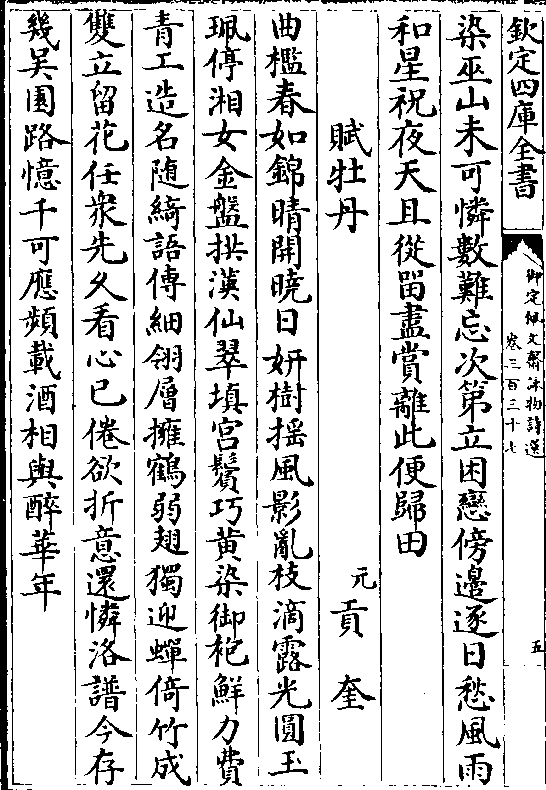 欽定四庫全書
御定佩文齋詠物詩選
卷三百三十七
五
染巫山未可憐數難忘次第立困戀傍邊逐日愁風雨
和星祝夜天且從留盡賞離此便歸田
賦牡丹
元貢奎
曲檻春如錦晴開曉日妍樹搖風影亂枝滴露光圓玉
珮停湘女金盤拱漢仙翠填宮鬢巧黃染御袍鮮力費
青工造名隨綺語傳細翎層擁鶴弱翅獨迎蟬倚竹成
雙立留花任衆先久看心已倦欲折意還憐洛譜今存
幾吳園路憶千可應頻載酒相與醉華年